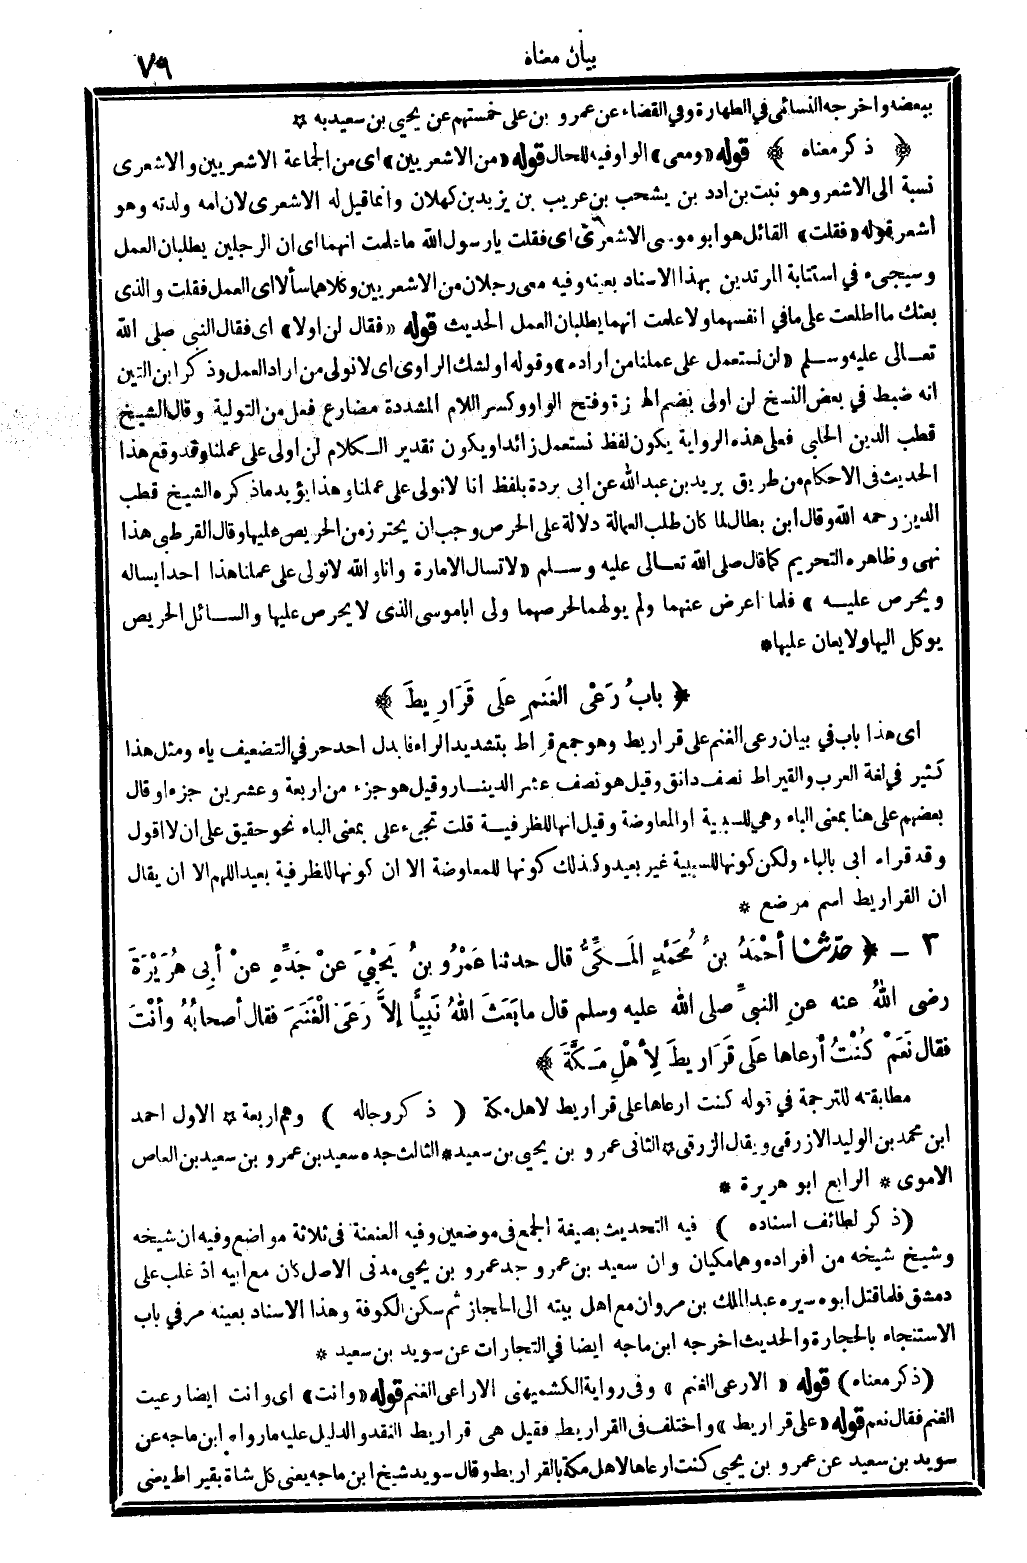 بيان معناه ٧٩
ببعضه واخرجه النسائى في الطهارة وفي القضاء عن عمرو بن على خمستهم عن يحيى بن سعيد به *
﴿ ذكر معناه ﴾ قوله «ومعى» الواو فيه للحال قوله «من الاشعريين» اى من الجماعة الاشعريين والاشعرى
نسبة الى الاشعر وهو نبت بن ادد بن يشحب بن عريب بن يزيد بن كهلان وانما قيل له الاشعرى لان امه ولدته وهو
اشعر قوله «فقلت» القائل هو ابو موسى الاشعرى اى فقلت يا رسول الله ما علمت انهما اى ان الرجلين يطلبان العمل
وسيجىء في استتابة المرتدين بهذا الاسناد بعينه وفيه معى رجلان من الاشعريين وكلاهما سألا اى العمل فقلت والذى
بعثك ما اطلعت على مافي انفسهما ولا علمت انهما يطلبان العمل الحديث قوله «فقال لن اولا» اى فقال النبى صلى الله
تعالى عليه وسلم «لن نستعمل على عملنا من اراده» وقوله او لشك الراوى اى لا نولى من اراد العمل وذكر ابن التين
انه ضبط في بعض النسخ لن اولى بضم الهمزة وفتح الواو وكسر اللام المشددة مضارع فعل من التولية وقال الشيخ
قطب الدين الحلبى فعلى هذه الرواية يكون لفظ نستعمل زائدا ويكون تقدير الكلام لن اولى على عملنا وقد وقع هذا
الحديث فى الاحكام من طريق بريد بن عبد الله عن ابى بردة بلفظ انا لا نولى على عملنا وهذا يؤيد ما ذكره الشيخ قطب
الدين رحمه الله وقال ابن بطال لما كان طلب العمالة دلالة على الحرص وجب ان يحترز من الحريص عليها وقال القرطبى هذا
نهى وظاهره التحريم كما قال صلى الله تعالى عليه وسلم «لا تسال الامارة وانا والله لا نولى على عملنا هذا احدا يساله
ويحرص عليه» فلما اعرض عنهما ولم يولهما لحرصهما ولى ابا موسى الذى لا يحرص عليها والسائل الحريص
يوكل اليها ولا يعان عليها *
﴿ بابُ رَعْىِ الغَنَمِ عَلَى قَرَارِيطَ ﴾
اى هذا باب في بيان رعى الغنم على قراريط وهو جمع قراط بتشديد الراء فابدل احد حرفي التضعيف ياء ومثل هذا
كثير في لغة العرب والقيراط نصف دانق وقيل هو نصف عشر الدينار وقيل هو جزء من اربعة وعشرين جزءا وقال
بعضهم على هنا بمعنى الباء وهي للسببية او المعاوضة وقيل انها للظرفية قلت تجىء على بمعنى الباء نحو حقيق على ان لا اقول
وقد قراء ابى بالباء ولكن كونها للسببية غير بعيد وكذلك كونها للمعاوضة الا ان كونها للظرفية بعيد اللهم الا ان يقال
ان القراريط اسم مرضع *
٣ ــ ﴿ حَدَّثنا أَحْمَدُ بنُ مُحَمَّدٍ المَكِّىُّ قال حدثنا عَمْرُو بنُ يَحْيَى عَنْ جَدِّهِ عنْ أبى هُرَيْرَةَ
رضى اللهُ عنه عنِ النبىِّ صلى الله عليه وسلم قال ما بَعَثَ اللهُ نَبِيًّا إلاَّ رَعَى الْغَنَمَ فقال أصحابُهُ وأنْتَ
فقال نَعَمْ كُنْتُ أرعاها علَى قَرَارِيطَ لِأَهْلِ مَكَّةَ ﴾
مطابقته للترجمة في قوله كنت ارعاها على قراريط لاهل مكة ( ذكر رجاله ) وهم اربعة * الاول احمد
ابن محمد بن الوليد الازرقى ويقال الزرقى * الثانى عمرو بن يحيى بن سعيد * الثالث جده سعيد بن عمرو بن سعيد بن العاص
الاموى * الرابع ابو هريرة *
(ذكر لطائف اسناده ) فيه التحديث بصيغة الجمع فى موضعين وفيه العنعنة فى ثلاثة مواضع وفيه ان شيخه
وشيخ شيخه من افراده وهما مكيان وان سعيد بن عمرو جد عمرو بن يحيى مدنى الاصل كان مع ابيه اذ غلب على
دمشق فلما قتل ابوه سيره عبد الملك بن مروان مع اهل بيته الى الحجاز ثم سكن الكوفة وهذا الاسناد بعينه مر في باب
الاستنجاء بالحجارة والحديث اخرجه ابن ماجه ايضا في التجارات عن سويد بن سعيد *
(ذكر معناه) قوله « الا رعى الغنم » وفى رواية الكشميهنى الا راعى الغنم قوله «وانت» اى وانت ايضا رعيت
الغنم فقال نعم قوله «على قراريط» واختلف فى القراريط فقيل هى قراريط النقد والدليل عليه ما رواه ابن ماجه عن
سويد بن سعيد عن عمرو بن يحيى كنت ارعاها لاهل مكة بالقراريط وقال سويد شيخ ابن ماجه يعنى كل شاة بقيراط يعنى